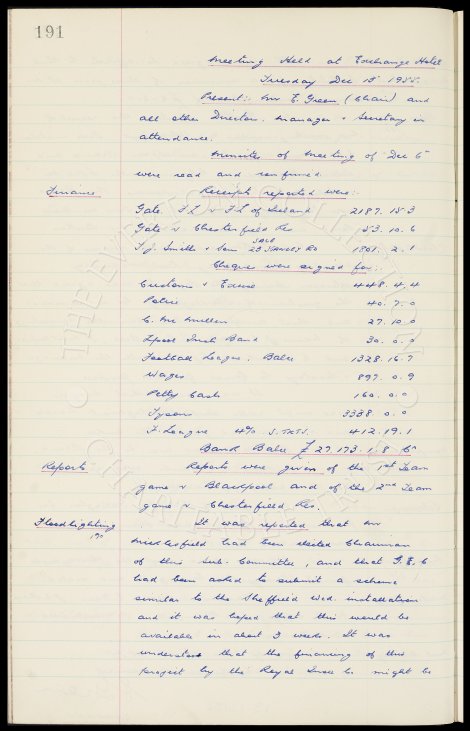 191
Meeting Held at Exchange Hotel
Tuesday Dec 1955.
Present:- Mr E. Green (Chair) and
all other Directors. Manager & Secretary in
attendance.
Minutes of Meeting of Dec 6
were read and confirmed.
Finance
Receipts reported were:-
Gate. F.L. v F.L. of Ireland 2187. 15. 3
Gate v Chesterfield Res 53. 10. 6
T.J. Smith & Son SALE 23 STANLEY RD 1801. 2. 1
Cheques were signed for:-
Customs & Excise 448. 4. 4
Police 40. 7. 0
C. McMullen 27. 10. 0
Lpool Irish Band 30. 0. 0
Football League. Balce 1328. 16. 7
Wages 897. 0. 9
Petty Cash 160. 0. 0
Tysons 3338. 0. 0
F. League 4% S.TKTS. 412. 19. 1
Bank Balce £27.173. 1. 8.
Reports
Reports were given of the 1st Team
game v Blackpool and of the 2nd Team
game v Chesterfield Res.
Floodlighting
It was reported that Mr
had been elected Chairman
of this Sub. Committee, and that G.E.C
had been asked to submit a scheme
similar to the Sheffield Wed. installation
and it was hoped that this would be
available in about 3 weeks. It was
understood that the financing of this
project by the Royal Insce Co. might be
THE EVERTON COLLECTION
CHARITABLE TRUST